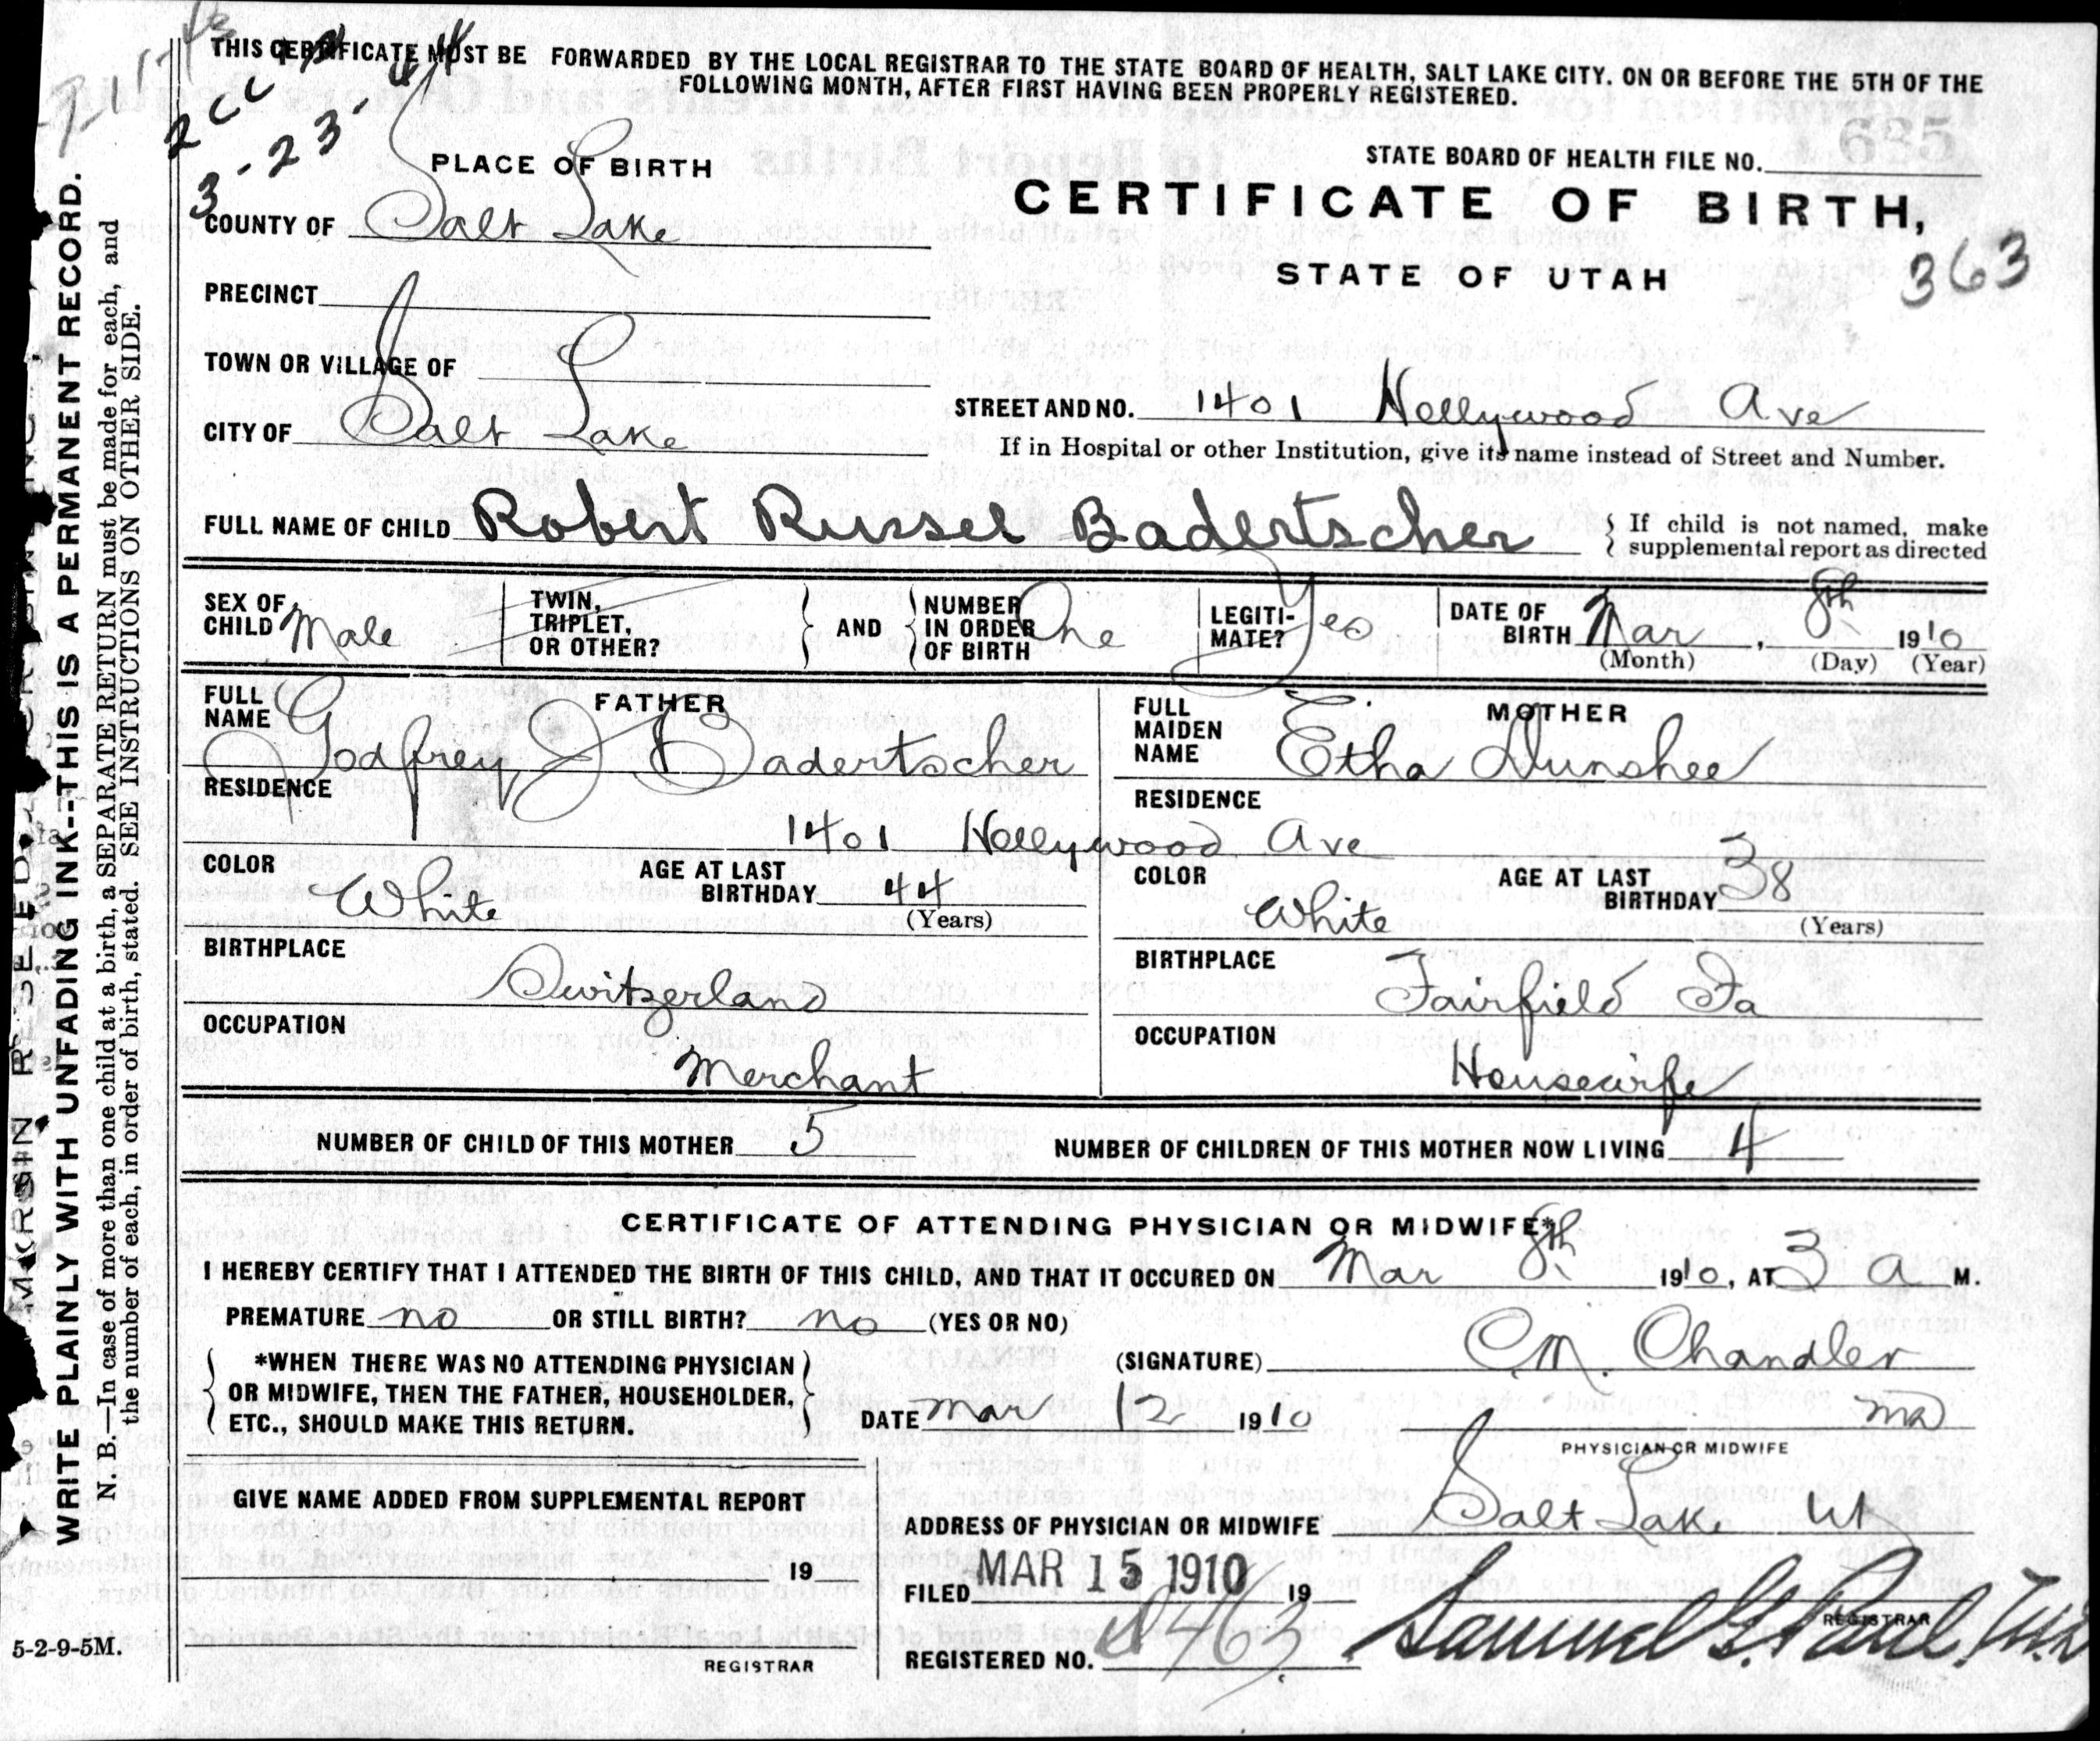 THIS CERTIFICATE MUST BE FORWARDED BY THE LOCAL REGISTRAR TO THE STATE BOARD OF HEALTH, SALT LAKE CITY. ON OR BEFORE THE 5TH OF THE
FOLLOWING MONTH, AFTER FIRST HAVING BEEN PROPERLY REGISTERED.
3-23-44
PLACE OF BIRTH
STATE BOARD OF HEALTH FILE NO.
CERTIFICATE OF BIRTH,
COUNTY OF Salt Lake
STATE OF UTAH
363
PRECINCT
TOWN OR VILLAGE OF
STREET AND NO. 1401 Hollywood Ave
CITY OF Salt Lake
If in Hospital or other Institution, give its name instead of Street and Number.
FULL NAME OF CHILD Robert Russel Badertscher
If child is not named, make
supplemental report as directed
SEX OF CHILD Male
TWIN, TRIPLET, OR OTHER?
AND
NUMBER IN ORDER OF BIRTH One
LEGITI-MATE? Yes
DATE OF BIRTH Mar, 8th 1910
(Month) (Day) (Year)
FATHER
FULL NAME Godfrey J Badertscher
MOTHER
FULL MAIDEN NAME Etha Dunshee
RESIDENCE
RESIDENCE
1401 Hollywood Ave
COLOR White
AGE AT LAST BIRTHDAY 44
(Years)
COLOR White
AGE AT LAST BIRTHDAY 38
(Years)
BIRTHPLACE
Switzerland
BIRTHPLACE
Fairfield Ia
OCCUPATION
Merchant
OCCUPATION
Housewife
NUMBER OF CHILD OF THIS MOTHER 5
NUMBER OF CHILDREN OF THIS MOTHER NOW LIVING 4
CERTIFICATE OF ATTENDING PHYSICIAN OR MIDWIFE*
I HEREBY CERTIFY THAT I ATTENDED THE BIRTH OF THIS CHILD, AND THAT IT OCCURED ON Mar 8th 1910, AT 3 a M.
PREMATURE no OR STILL BIRTH? no (YES OR NO)
*WHEN THERE WAS NO ATTENDING PHYSICIAN
OR MIDWIFE, THEN THE FATHER, HOUSEHOLDER,
ETC., SHOULD MAKE THIS RETURN.
(SIGNATURE) C.M. Chandler
DATE Mar 12 1910
MD
PHYSICIAN OR MIDWIFE
GIVE NAME ADDED FROM SUPPLEMENTAL REPORT
ADDRESS OF PHYSICIAN OR MIDWIFE Salt Lake Ut
19
FILED MAR 15 1910 19
REGISTRAR
REGISTERED NO. 463
Samuel G. Paul, M.D.
REGISTRAR
5-2-9-5M.
WRITE PLAINLY WITH UNFADING INK---THIS IS A PERMANENT RECORD.
N. B.—In case of more than one child at a birth, a SEPARATE RETURN must be made for each, and
the number of each, in order of birth, stated. SEE INSTRUCTIONS ON OTHER SIDE.